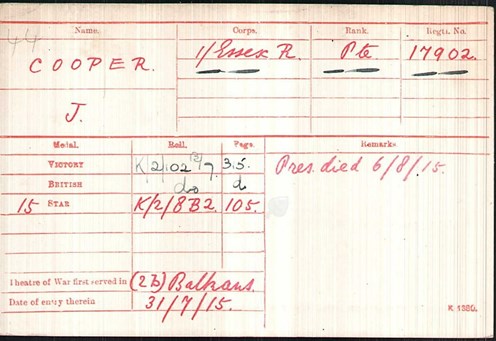 Name. Corps. Rank. Regtl. No.
COOPER. 1/Essex R. Pte 17902.
J.
Medal. Roll. Page. Remarks
VICTORY K/2/102 B/7 35. Pres. died 6/8/15.
BRITISH do d
15 STAR K/2/8B2. 105.
Theatre of War first served in (2B) Balkans.
Date of entry therein 31/7/15.
K 1380.